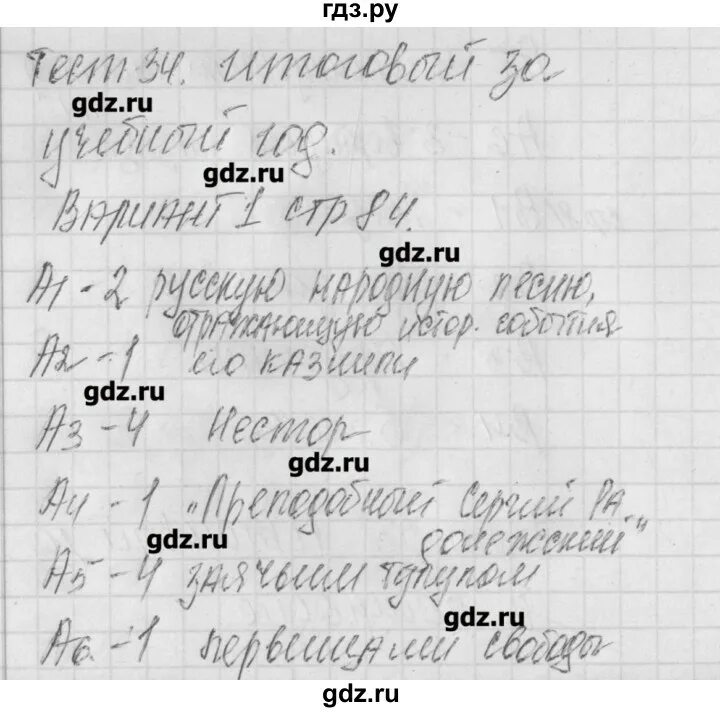 гдз.ру
Тест 34. Итоговый за
gdz.ru
учебный год.
gdz.ru
Вариант 1 стр 84.
gdz.ru
А1 - 2 русскую народную песню,
отражающую истор. события
А2 - 1 его казнили
gdz.ru
А3 - 4 Нестор
gdz.ru
А4 - 1 „Преподобный Сергий Ра
gdz.ru
донежский"
А5 - 4 заячьим тулупом
gdz.ru
А6 - 1 первенцами свободы
gdz.ru